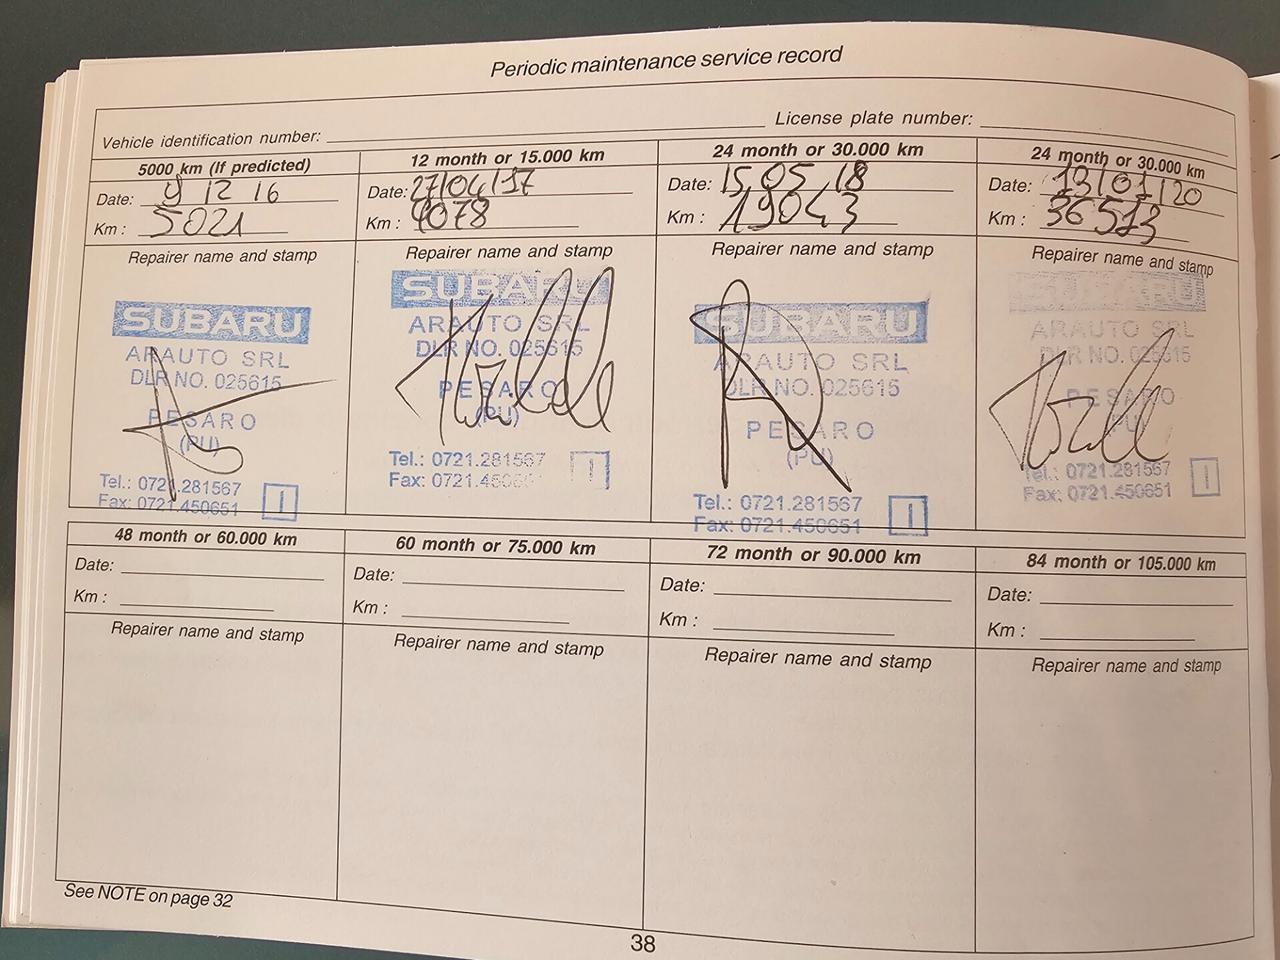 Periodic maintenance service record
Vehicle identification number:
License plate number:
5000 km (If predicted)
Date: 9 12 16
Km : 5021
Repairer name and stamp
SUBARU
ARAUTO SRL
DLR NO. 025615
PESARO
(PU)
Tel.: 0721.281567
Fax: 0721.450651
12 month or 15.000 km
Date: 27/04/17
Km : 9078
Repairer name and stamp
SUBARU
ARAUTO SRL
DLR NO. 025615
PESARO
(PU)
Tel.: 0721.281567
Fax: 0721.450651
24 month or 30.000 km
Date: 15.05.18
Km : 19043
Repairer name and stamp
SUBARU
ARAUTO SRL
DLR NO. 025615
PESARO
(PU)
Tel.: 0721.281567
Fax: 0721.450651
24 month or 30.000 km
Date: 13/01/20
Km : 36513
Repairer name and stamp
SUBARU
ARAUTO SRL
DLR NO. 025615
PESARO
(PU)
Tel.: 0721.281567
Fax: 0721.450651
48 month or 60.000 km
Date:
Km :
Repairer name and stamp
60 month or 75.000 km
Date:
Km :
Repairer name and stamp
72 month or 90.000 km
Date:
Km :
Repairer name and stamp
84 month or 105.000 km
Date:
Km :
Repairer name and stamp
See NOTE on page 32
38